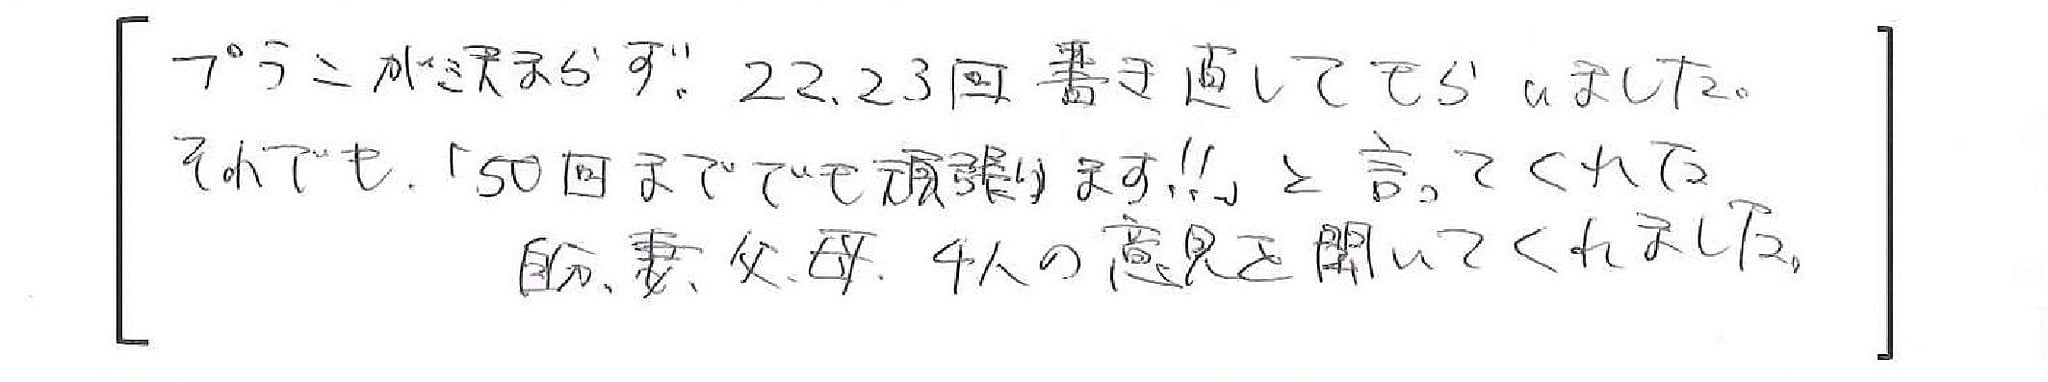 プランが決まらず、22、23回書き直してもらいました。
それでも、「50回まででも頑張ります!!」と言ってくれた
自分、妻、父、母、4人の意見を聞いてくれました。